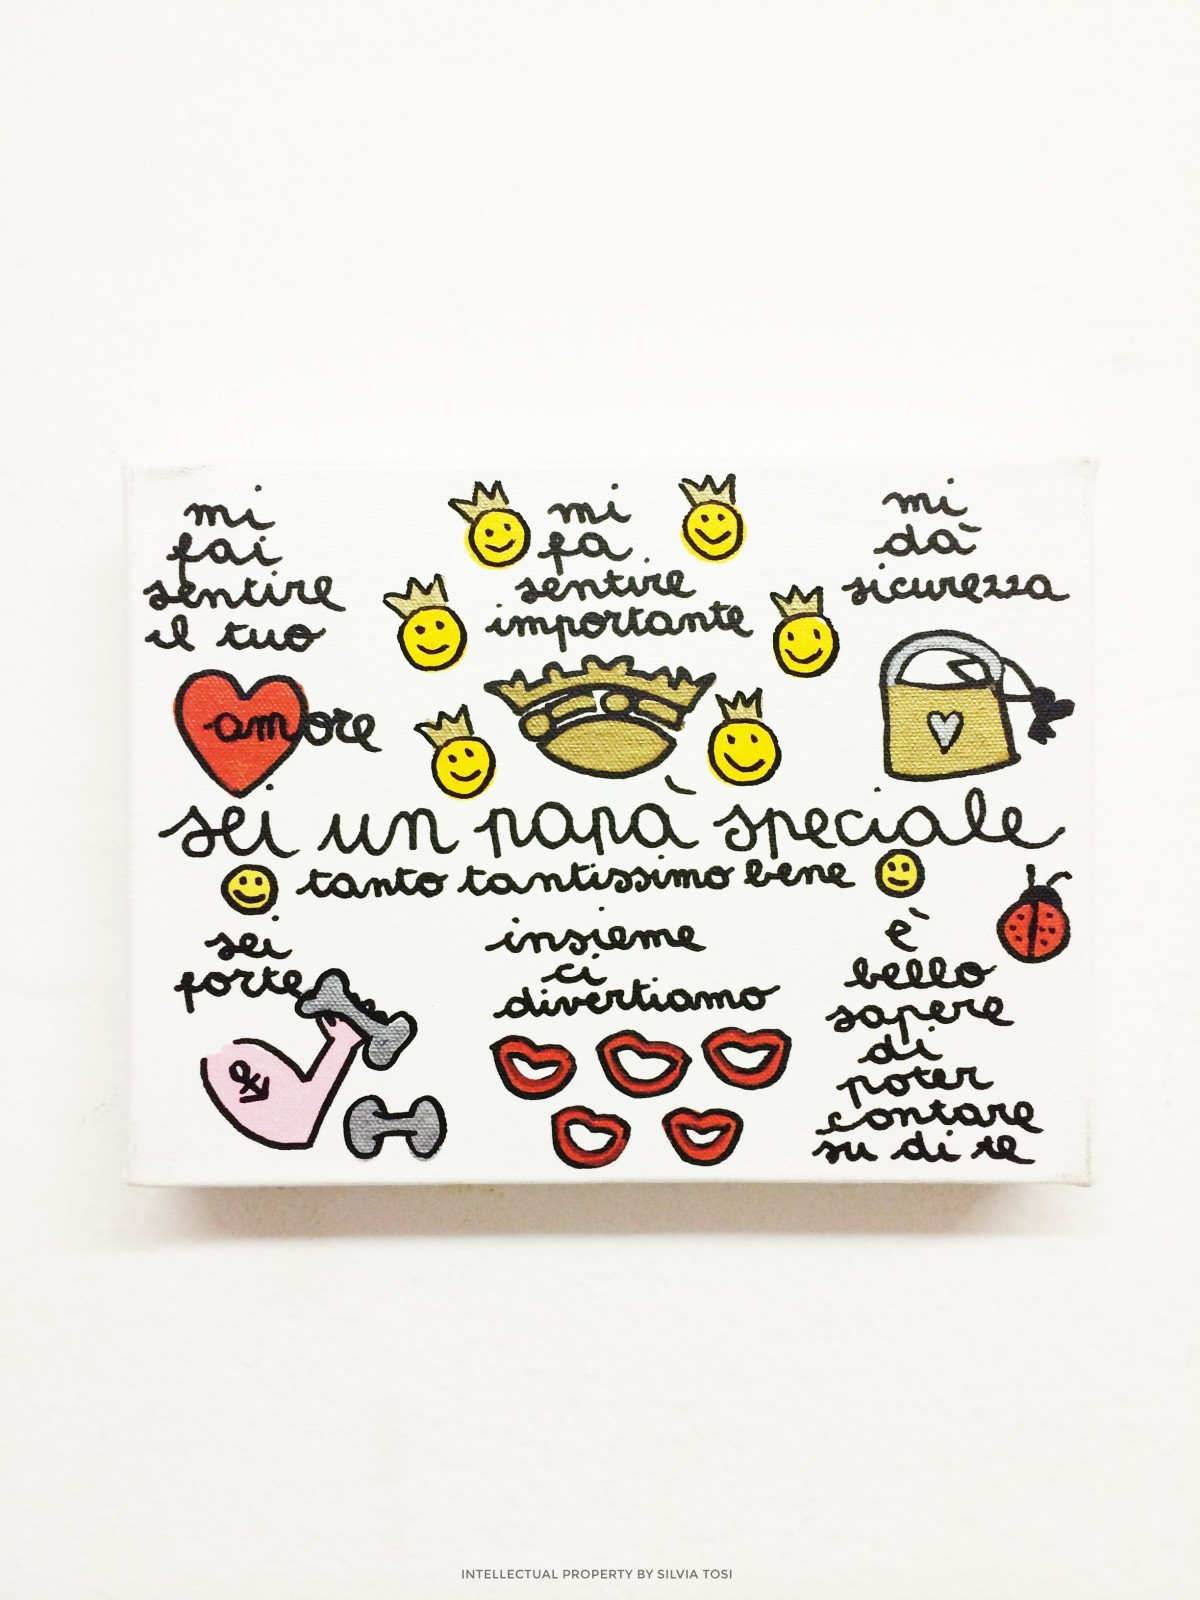 mi
fai
sentire
il tuo
amore
mi
fa
sentire
importante
mi
dà
sicurezza
sei un papà speciale
tanto tantissimo bene
sei
forte
insieme
ci
divertiamo
è
bello
sapere
di
poter
contare
su di te
INTELLECTUAL PROPERTY BY SILVIA TOSI